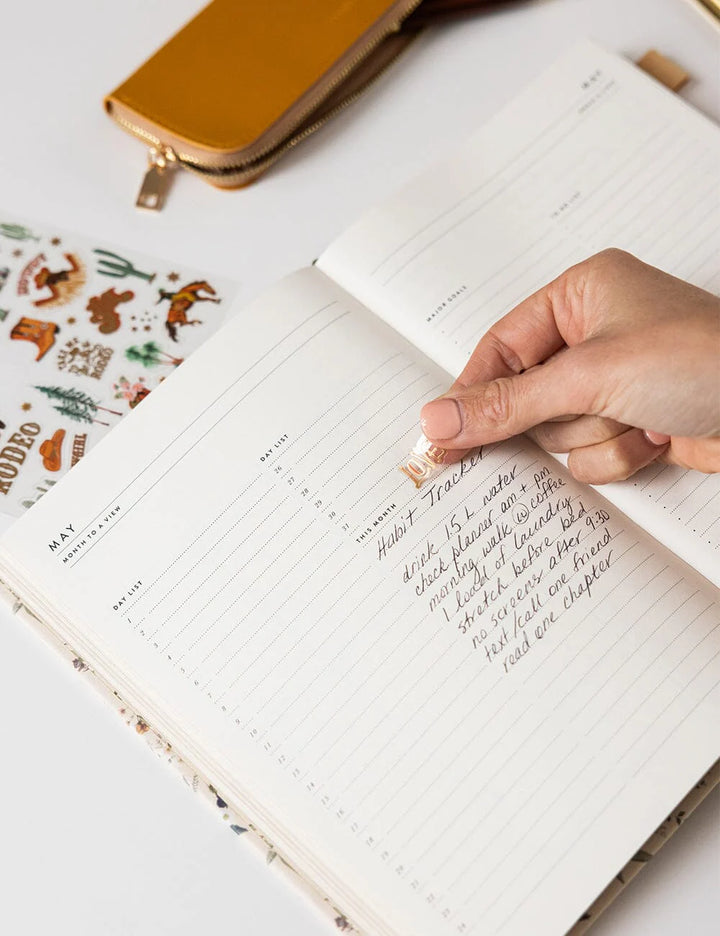 MAY
MONTH TO A VIEW
DAY LIST
1
2
3
4
5
6
7
8
9
10
11
12
13
14
15
16
17
18
19
20
21
22
23
24
DAY LIST
26
27
28
29
30
31
THIS MONTH
Habit Tracker
drink 1.5 L water
check planner am + pm
morning walk w coffee
1 load of laundry
stretch before bed
no screens after 9:30
text/call one friend
read one chapter
MAJOR GOALS
TO-DO LIST
RODEO